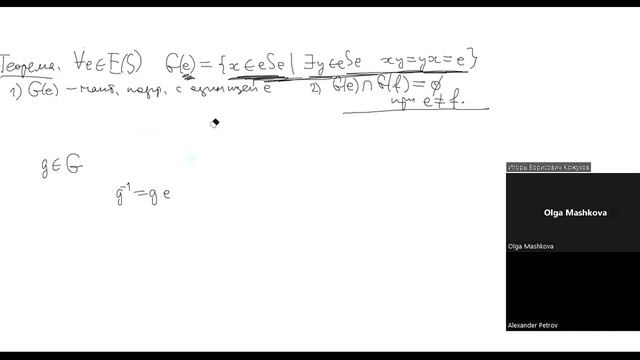 Теорема. ∀e∈E(S) G(e) = {x∈eSe | ∃y∈eSe xy=yx=e}
1) G(e) – наиб. подгр. с единицей e 2) G(e)∩G(f)=∅
при e≠f.
g∈G
g⁻¹=g e
Игорь Борисович Кожухов
Olga Mashkova
Olga Mashkova
Alexander Petrov